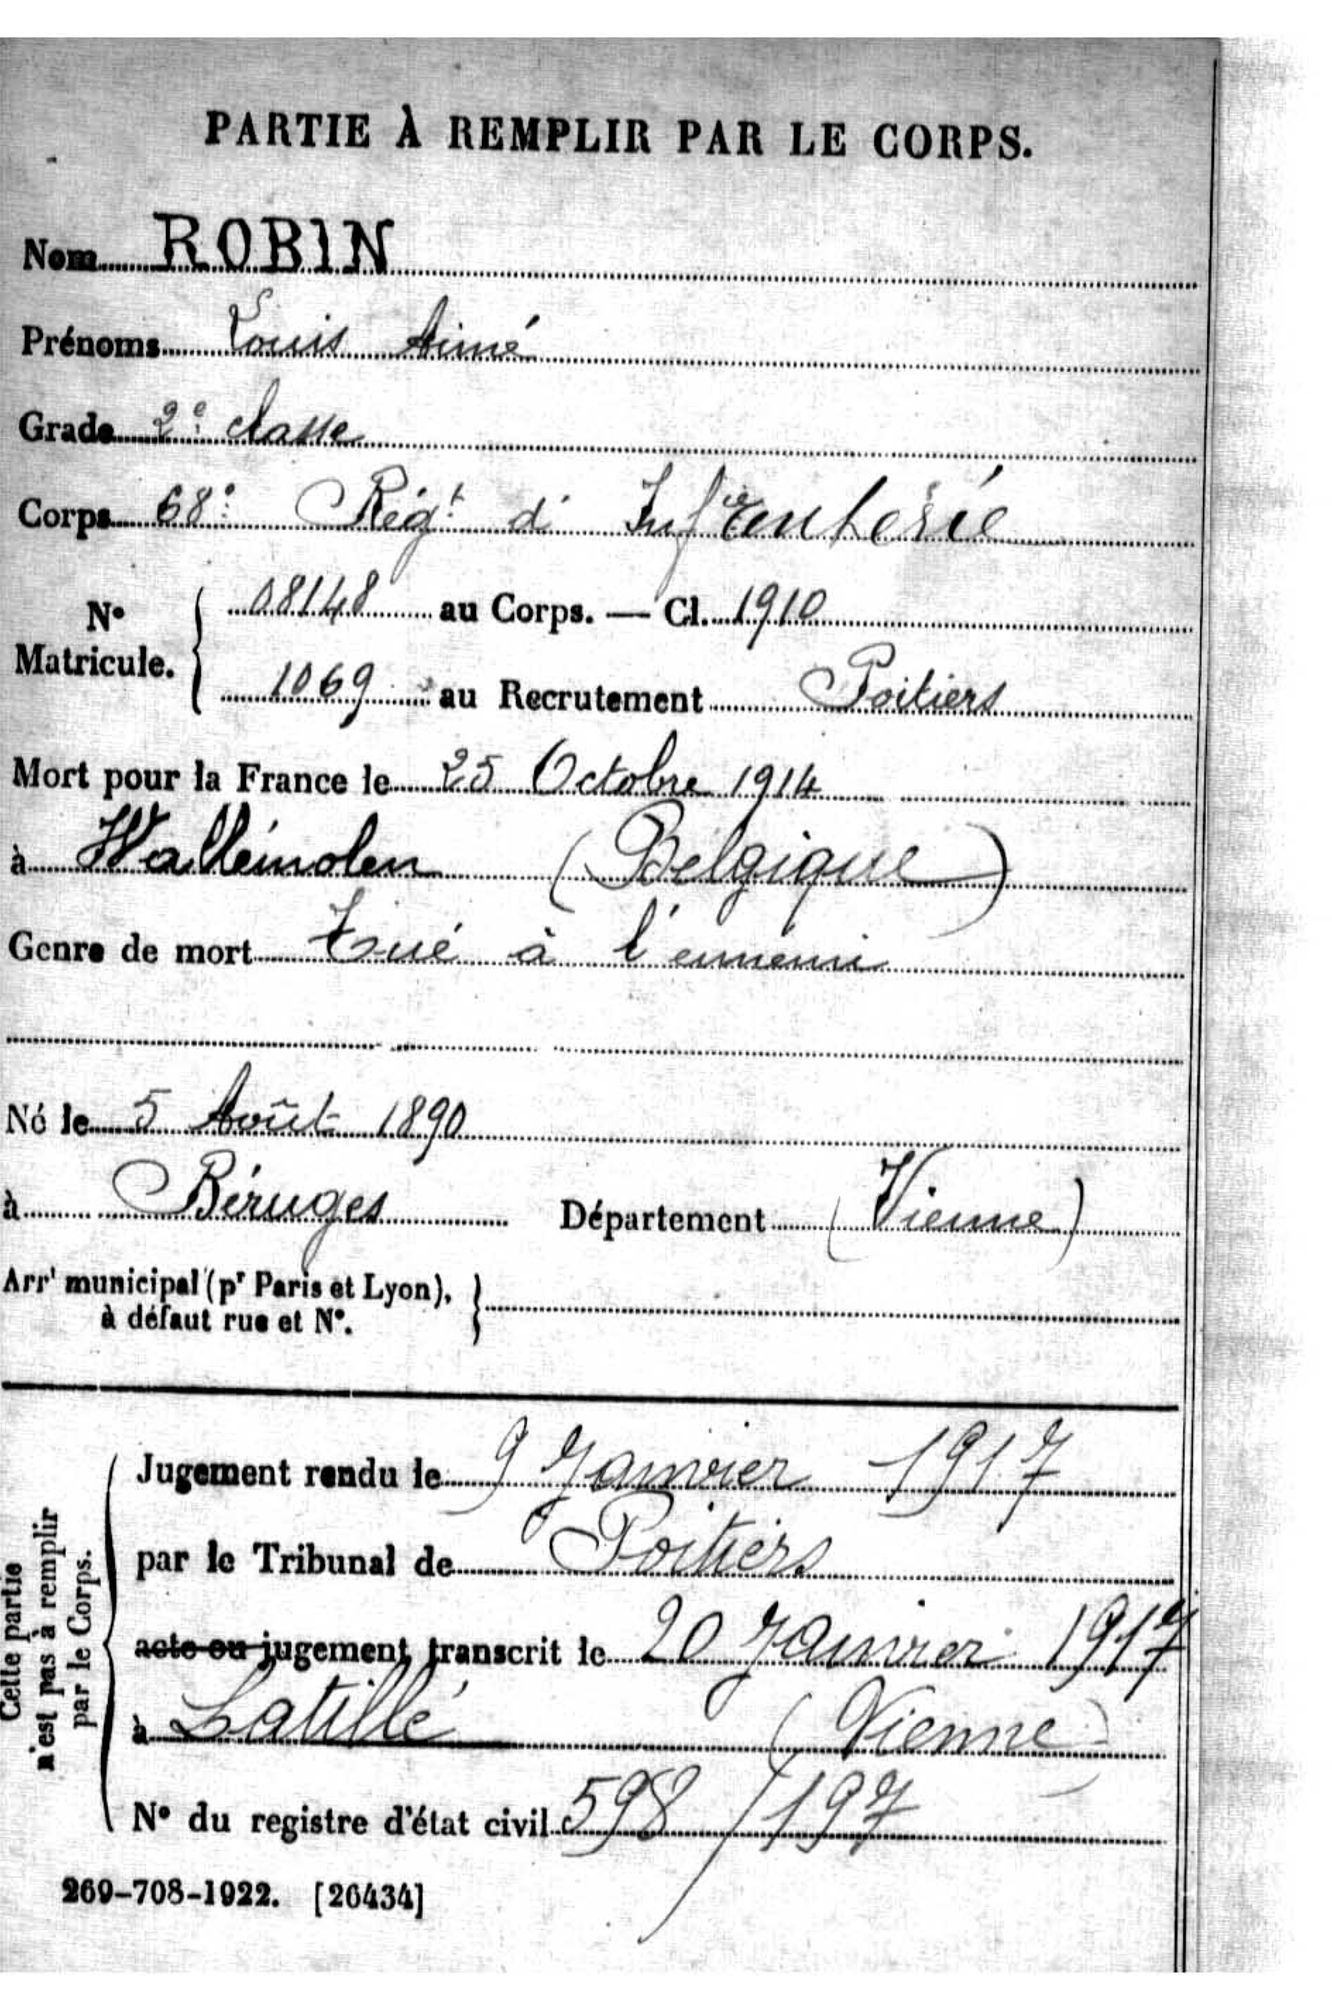 PARTIE À REMPLIR PAR LE CORPS.
Nom ROBIN
Prénoms Louis Aimé
Grade 2e classe
Corps 68e Régt d'Infanterie
No Matricule. { 08148 au Corps. — Cl. 1910
1069 au Recrutement Poitiers
Mort pour la France le 25 Octobre 1914
à Wallémolen (Belgique)
Genre de mort Tué à l'ennemi
Né le 5 Août 1890
à Béruges Département (Vienne)
Arrt municipal (pr Paris et Lyon), }
à défaut rue et No.
Cette partie
n'est pas à remplir
par le Corps.
Jugement rendu le 9 Janvier 1917
par le Tribunal de Poitiers
acte ou jugement transcrit le 20 Janvier 1917
à Latillé (Vienne)
No du registre d'état civil 598/197
269-708-1922. [26434]